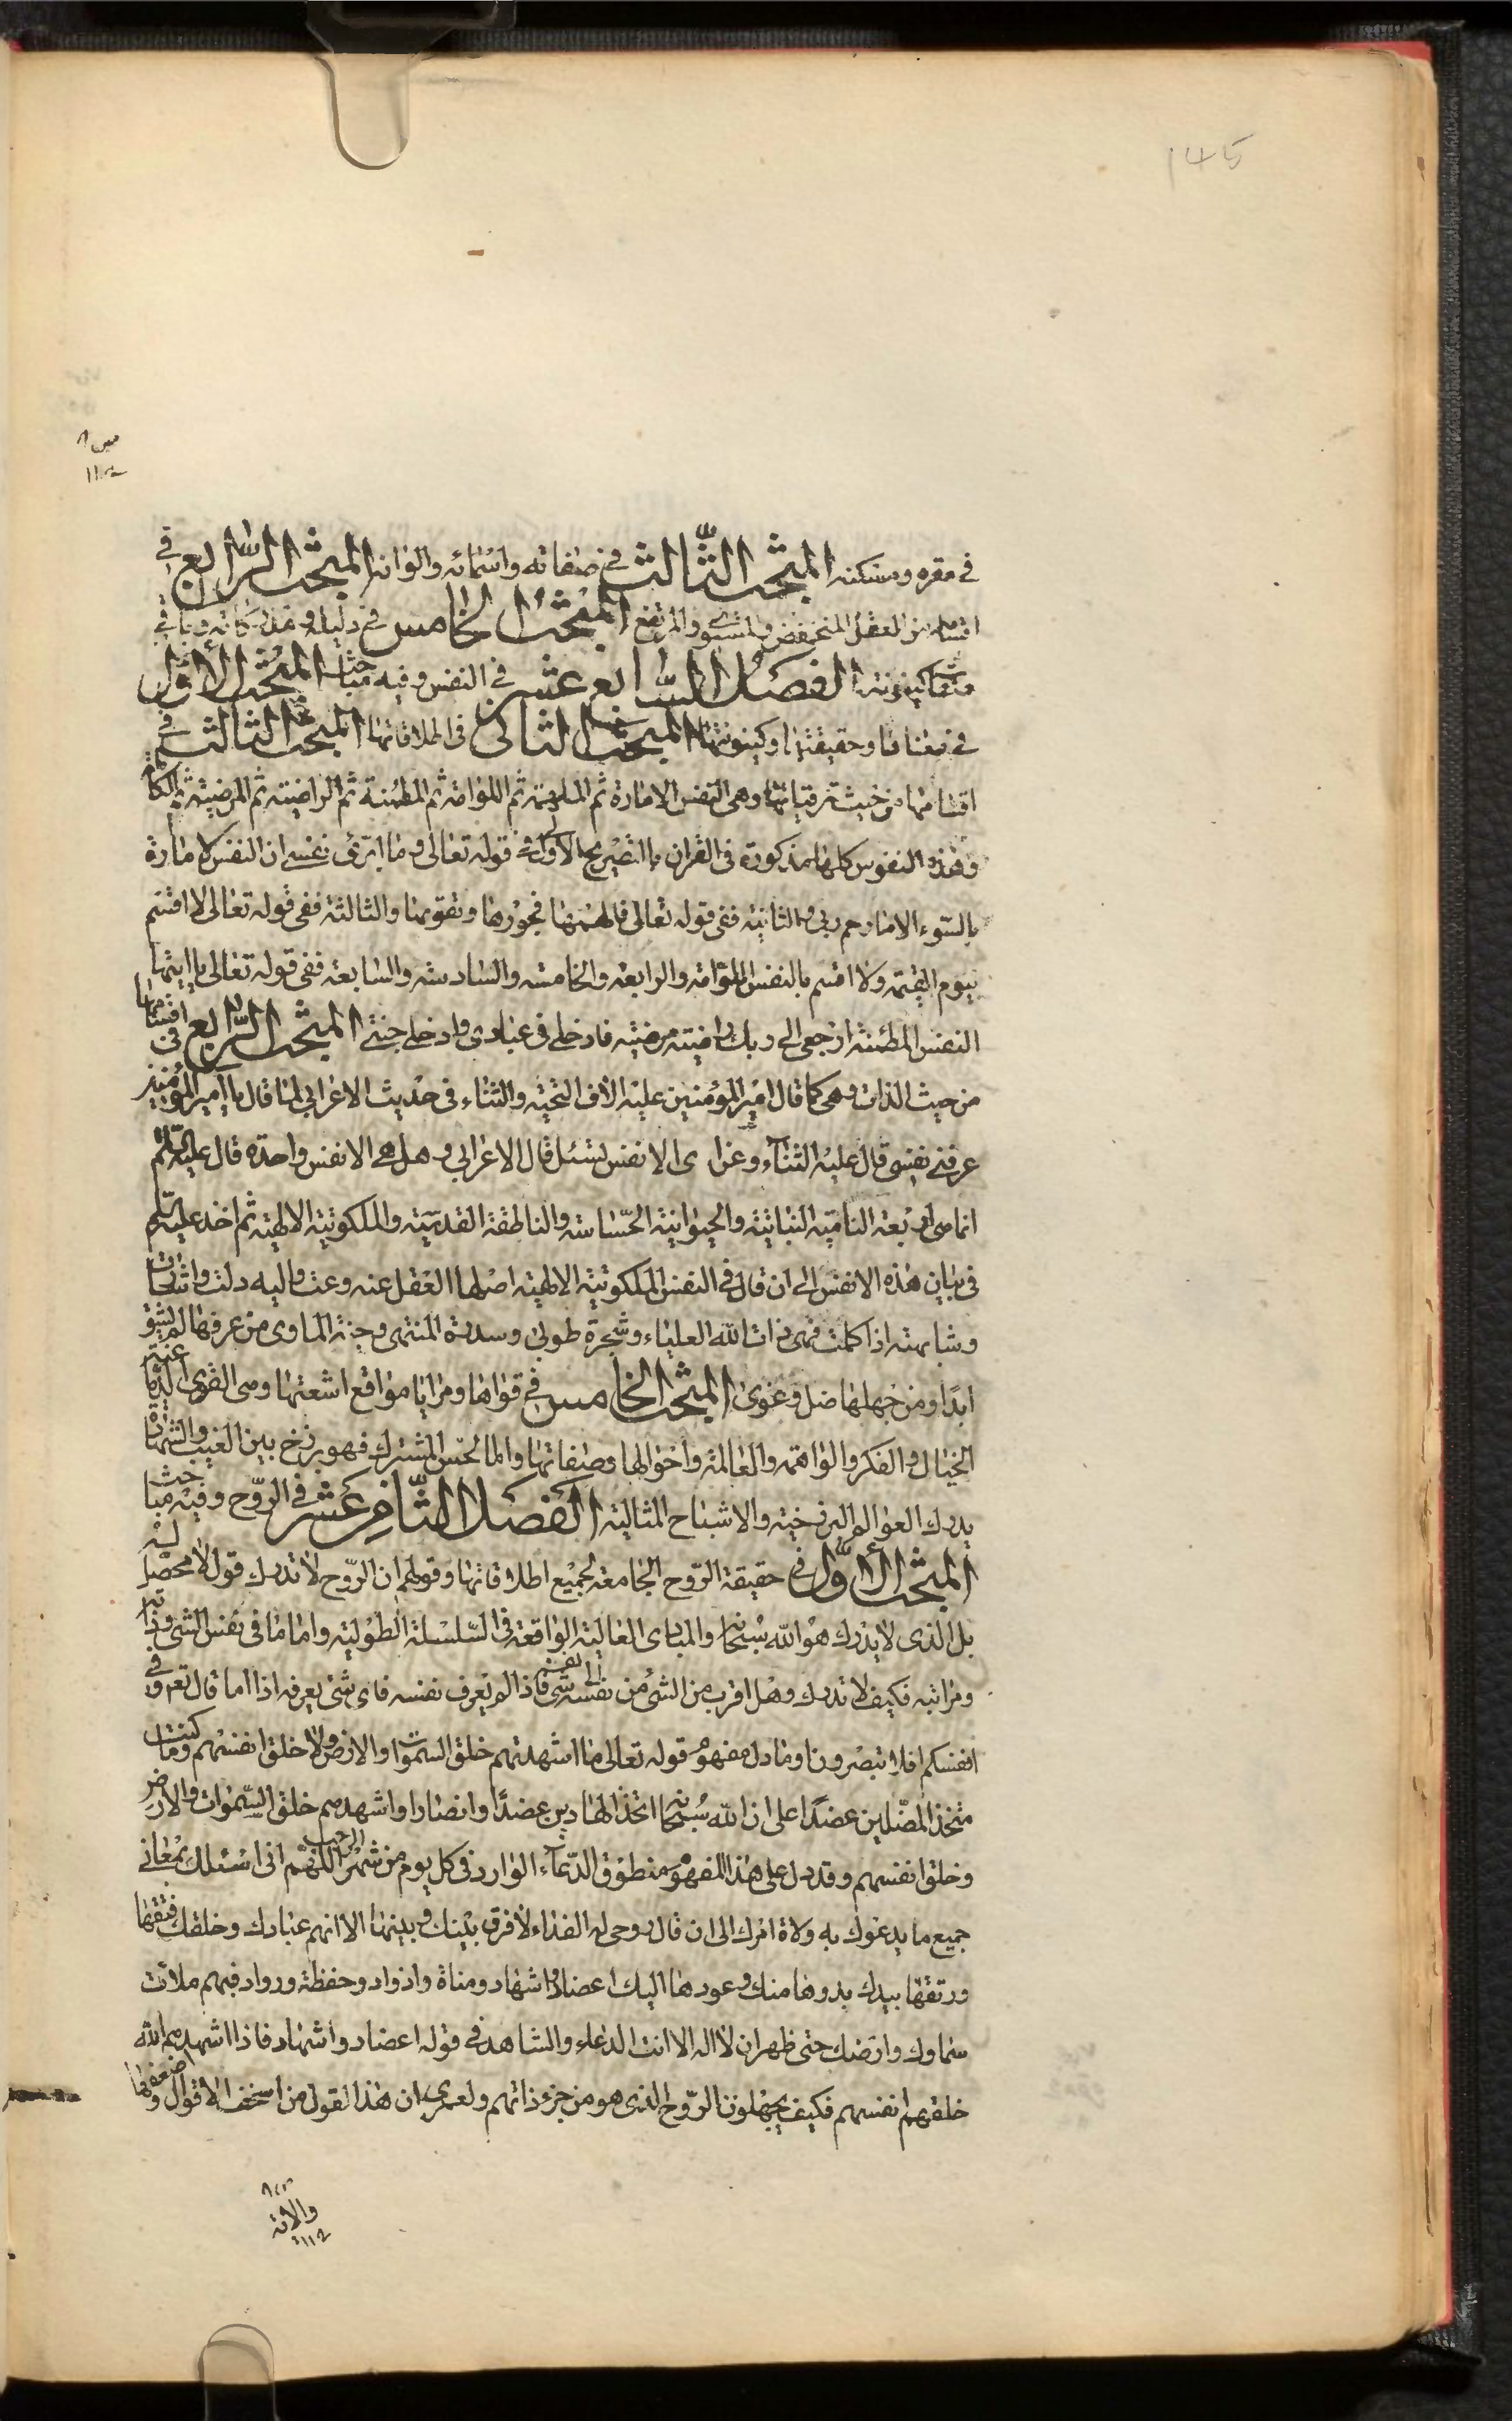 145
في مقره ومسكنه المبحث الثّالث في صفاته واسمائه والوانه المبحث الرّابع في
اقسامه من العقل المنخفض والمستوى والمرتفع المبحث الخامس في دليله
الفصل السّابع عشر في النفس وفيه مباحث المبحث الأوّل
في معناها وحقيقتها وكينونتها المبحث الثاني في اطلاقاتها المبحث الثالث في
اقسامها من حيث ترقياتها وهي النفس الامارة ثم الملهمة ثم اللوامة ثم المطمئنة ثم الراضية ثم المرضية ثم الكاملة
وهذه النفوس كلها مذكورة في القران بالتصريح الاولى في قوله تعالى وما ابرّئ نفسي ان النفس لامارة
بالسّوء الا ما رحم ربي والثانية ففي قوله تعالى فالهمها فجورها وتقويها والثالثة ففي قوله تعالى لا اقسم
بيوم القيمة ولا اقسم بالنفس اللوّامة والرابعة والخامسة والسادسة والسابعة ففي قوله تعالى يا ايتها
النفس المطمئنة ارجعي الى ربك راضية مرضية فادخلي في عبادي وادخلي جنتي المبحث الرّابع في اقسامها
من حيث الذات وهي كما قال امير المؤمنين عليه الاف التحية والثناء في حديث الاعرابي لما قال يا امير المؤمنين
عرفني نفسي قال عليه الثناء وعزاى الانفس تسئل قال الاعرابي وهل هي الا نفس واحدة قال عليه السّلم
انما هي اربعة النامية النباتية والحيوانية الحسّاسة والناطقة القدسية والملكوتية الالهية ثم اخذ عليه السّلم
في بيان هذه الانفس الى ان قال في النفس الملكوتية الالهية اصلها العقل عنه وعت واليه دلت واشارت
وشابهته اذا كملت فهي ذات الله العلياء وشجرة طوبى وسدرة المنتهى وجنة الماوى من عرفها لم يشق
ابدًا ومن جهلها ضل وغوى المبحث الخامس في قواها ومرايا مواقع اشعتها وهي القوى
الخيال والفكر والواهمة والعالمة واحوالها وصفاتها واما الحسّ المشترك فهو برزخ بين الغيب والشهادة
يدرك العوالم البرزخية والاشباح المثالية الفصل الثّامن عشر في الرّوح وفيه مباحث
المبحث الأوّل في حقيقة الرّوح الجامعة لجميع اطلاقاتها وقولهم ان الرّوح لا تدرك قول لا محصّل له
بل الذي لا يدرك هو الله سبحانه والمبادي العالية الواقعة في السّلسلة الطولية واما ما في نفس الشئ وذاته
ومراتبه فكيف لا تدرك وهل اقرب من الشئ من نفسه شئ الى نفسه فاذا لم يعرف نفسه فاى شئ يعرفه اذا اما قال تع وفي
انفسكم افلا تبصرون وما دل مفهوم قوله تعالى ما اشهدتهم خلق السموات والارض ولا خلق انفسهم وما كنت
متخذ المضّلين عضدًا على ان الله سبحانه اتخذ الهادين عضدًا وانصارا واشهدهم خلق السّموات والارض
وخلق انفسهم وقد دل على هذا المفهوم منطوق الدّعاء الوارد في كل يوم من شهر الرجب اللّهم اني اسئلك بمعاني
جميع ما يدعوك به ولاة امرك الى ان قال روحي له الفداء لا فرق بينك وبينها الا انهم عبادك وخلقك فتقها
ورتقها بيدك بدوها منك وعودها اليك اعضاد واشهاد ومناة واذواد وحفظة ورواد فبهم ملات
سماوك وارضك حتى ظهر ان لا اله الا انت الدعاء والشاهد في قوله اعضاد واشهاد فاذا اشهدهم الله
خلقهم انفسهم فكيف يجهلون الرّوح الذي هو من جزء ذاتهم ولعمري ان هذا القول من اسخف الاقوال واضعفها